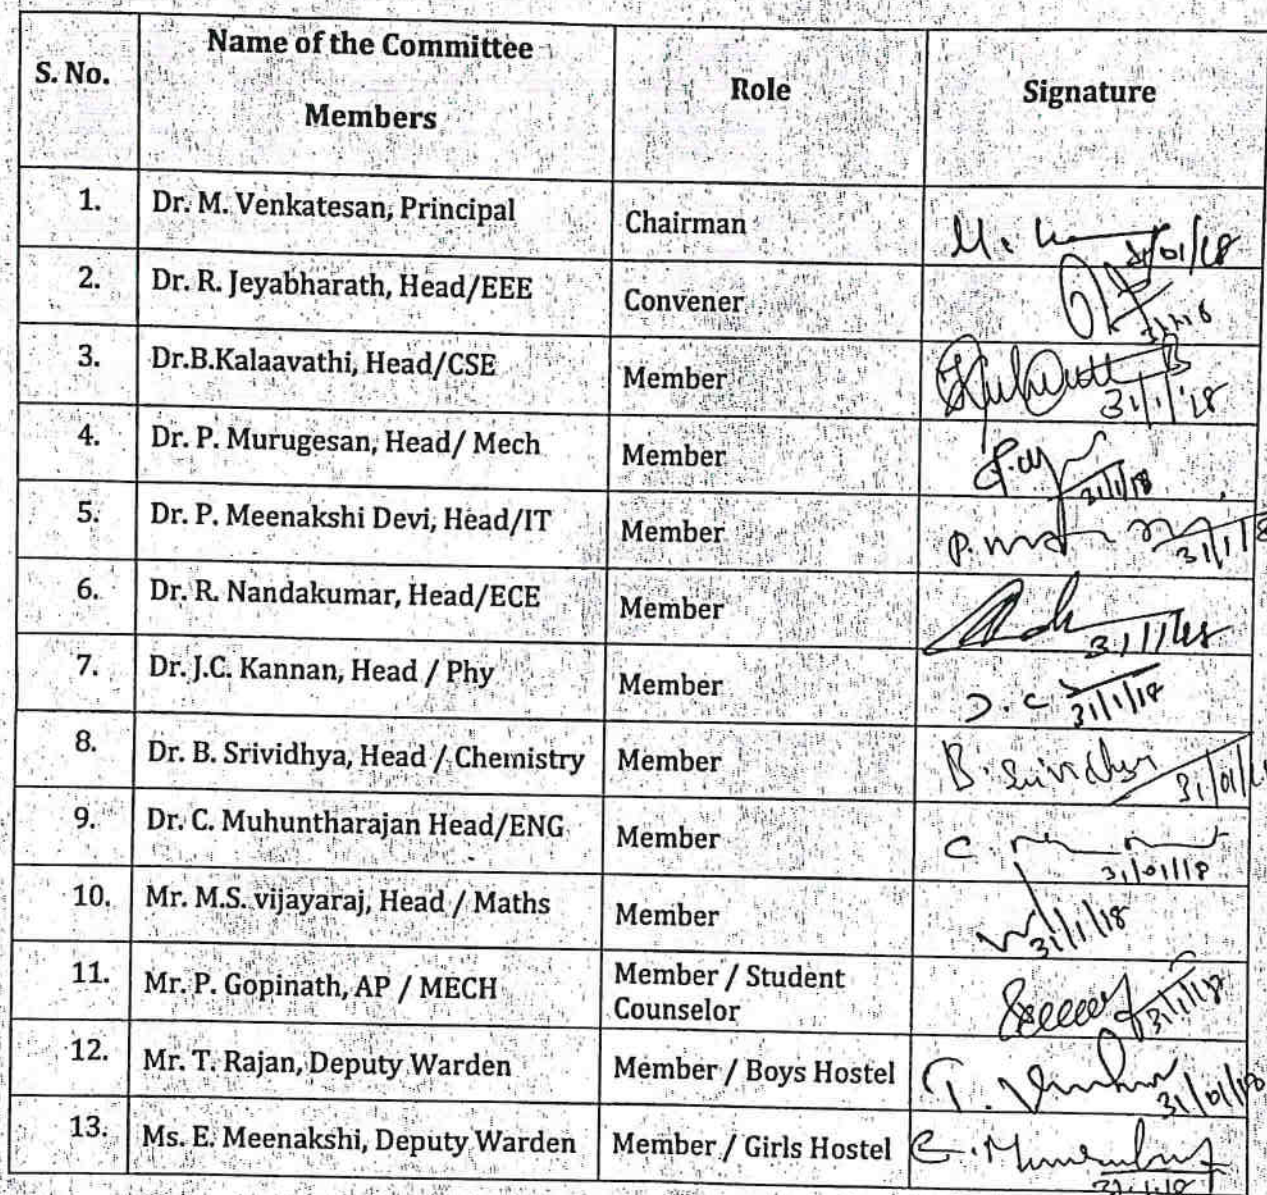 S. No.
Name of the Committee
Members
Role
Signature
1.
Dr. M. Venkatesan, Principal
Chairman
2.
Dr. R. Jeyabharath, Head/EEE
Convener
3.
Dr.B.Kalaavathi, Head/CSE
Member
31/1/18
4.
Dr. P. Murugesan, Head/ Mech
Member
31/1/18
5.
Dr. P. Meenakshi Devi, Head/IT
Member
31/1/18
6.
Dr. R. Nandakumar, Head/ECE
Member
31/1/18
7.
Dr. J.C. Kannan, Head / Phy
Member
31/1/18
8.
Dr. B. Srividhya, Head / Chemistry
Member
B. Srividhya 31/01/
9.
Dr. C. Muhuntharajan Head/ENG
Member
31/01/18
10.
Mr. M.S. vijayaraj, Head / Maths
Member
31/1/18
11.
Mr. P. Gopinath, AP / MECH
Member / Student
Counselor
31/1/18
12.
Mr. T. Rajan, Deputy Warden
Member / Boys Hostel
31/01/18
13.
Ms. E. Meenakshi, Deputy Warden
Member / Girls Hostel